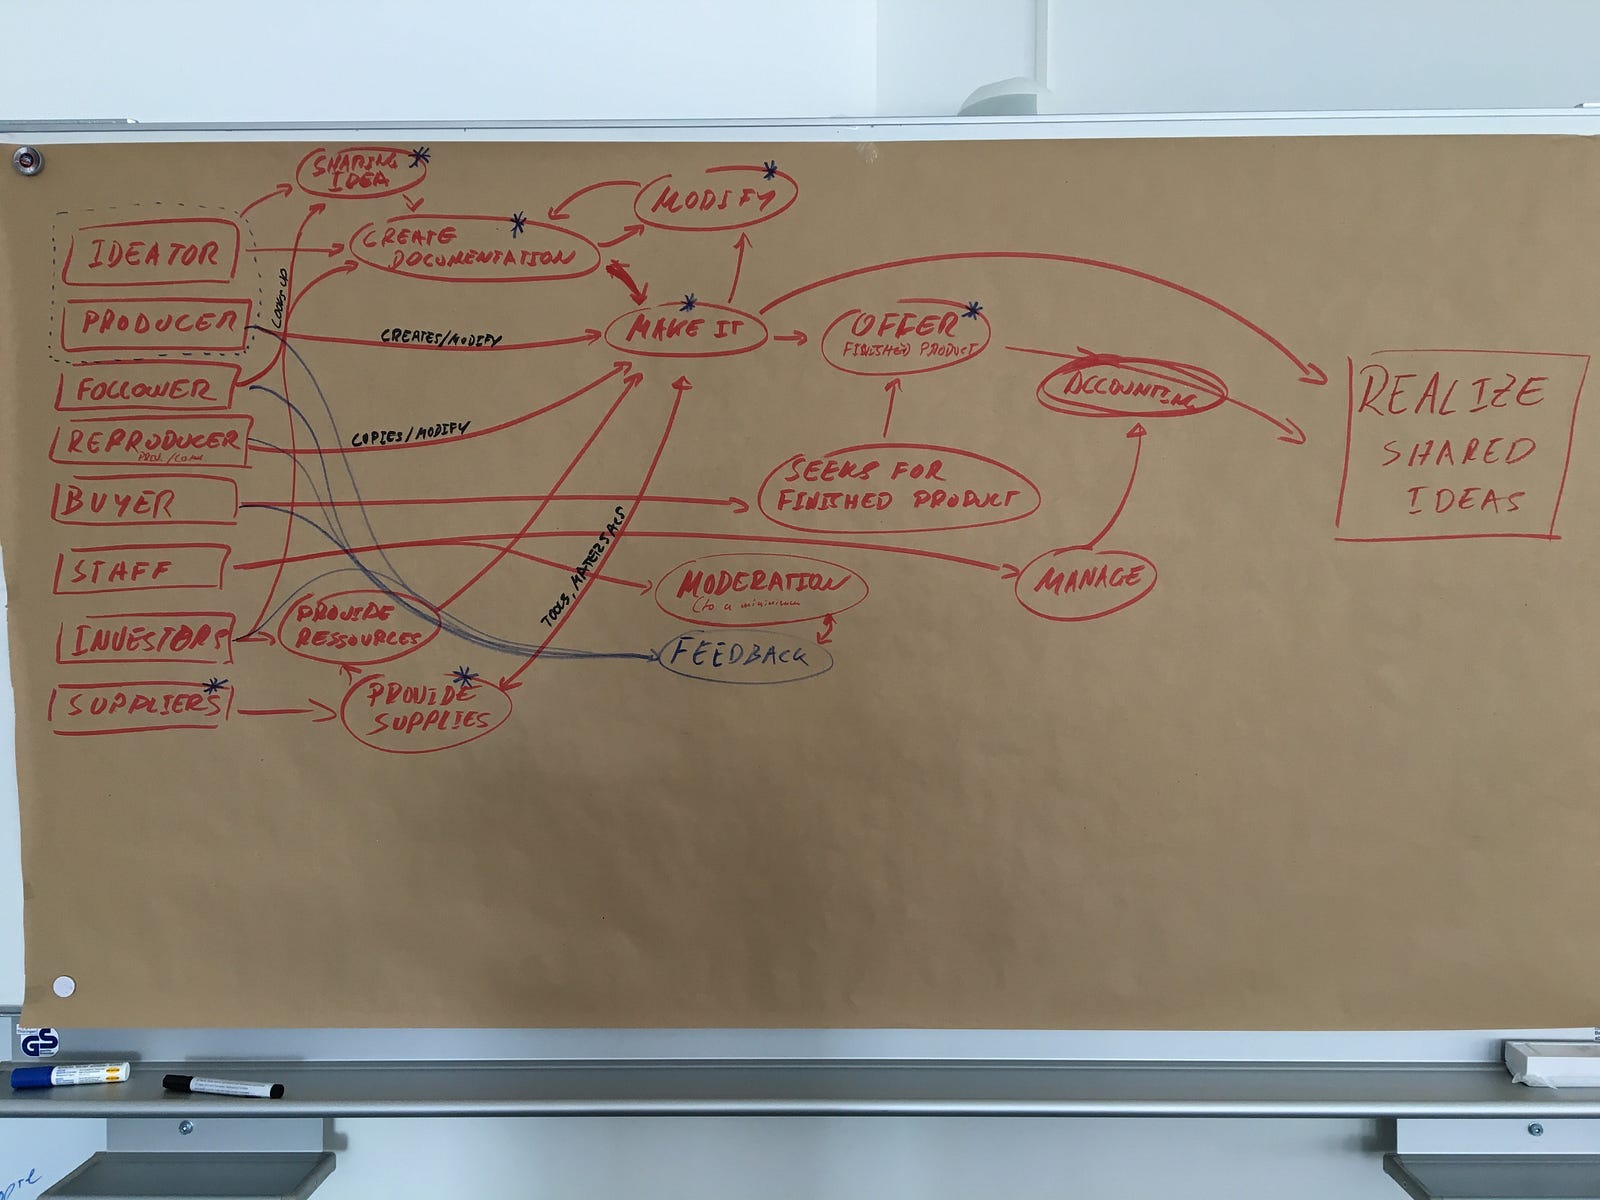 SHARING
IDEA
MODIFY
IDEATOR
CREATE
DOCUMENTATION
PRODUCER
LOOKS UP
CREATES/MODIFY
MAKE IT
OFFER
FINISHED PRODUCT
FOLLOWER
ACCOUNTING
REALIZE
SHARED
IDEAS
REPRODUCER
COPIES/MODIFY
BUYER
SEEKS FOR
FINISHED PRODUCT
STAFF
TOOLS, MATERIALS
MODERATION
(to a minimum
MANAGE
INVESTORS
PROVIDE
RESSOURCES
FEEDBACK
SUPPLIERS
PROVIDE
SUPPLIES
GS